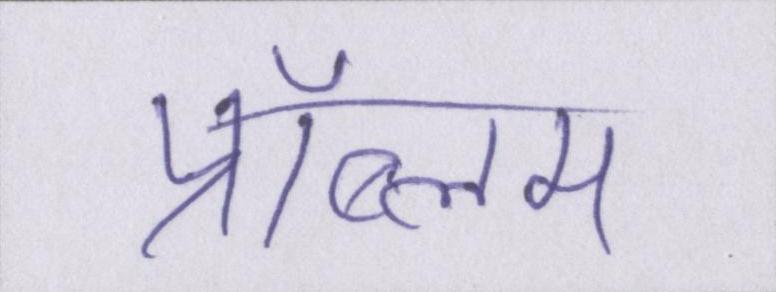 प्रॉब्लम